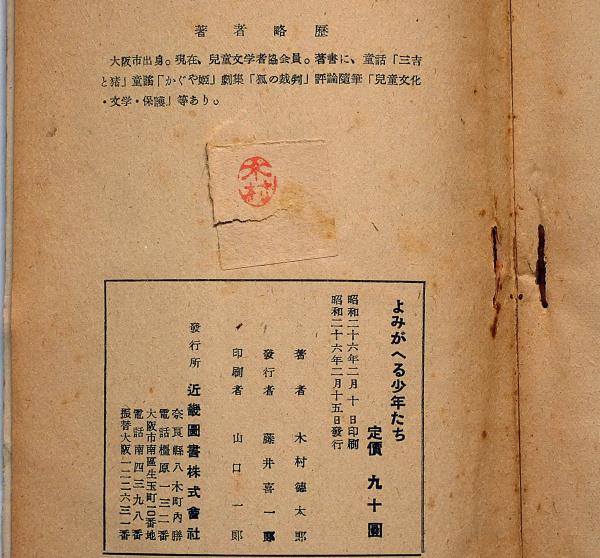 著者略歴
大阪市出身。現在、兒童文学者協会員。著書に、童話「三吉
と猪」童謡「かぐや姫」劇集「狐の裁判」評論随筆「兒童文化
・文学・保護」等あり。
木村
よみがへる少年たち
定價 九十圓
昭和二十六年二月十日印刷
昭和二十六年二月十五日發行
著者 木村徳太郎
發行者 藤井喜一郎
印刷者 山口一郎
發行所 近畿圖書株式會社
奈良縣八木町内膳
電話橿原一三二番
大阪市南區生玉町10番地
電話南四三九八番
振替大阪一二二六三一番